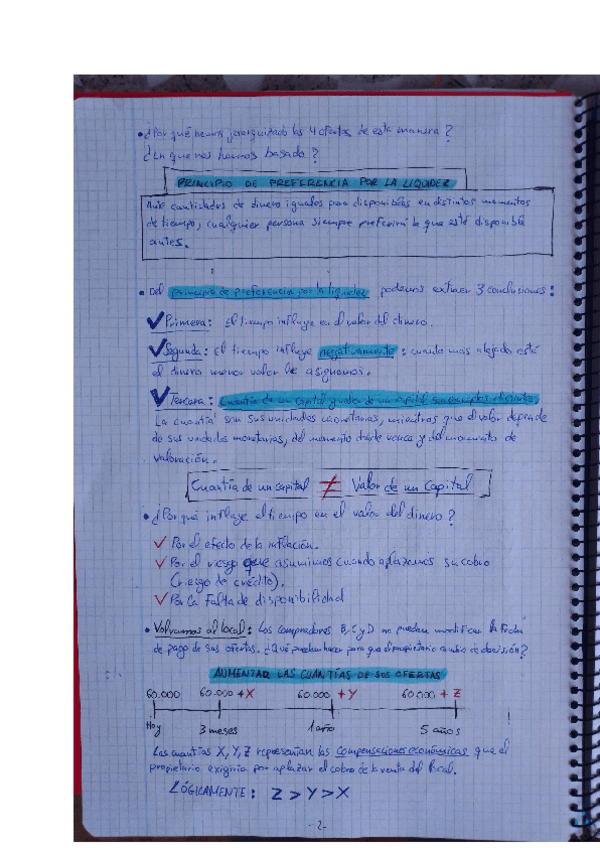 • ¿Por qué hemos jerarquizado las 4 ofertas de esta manera?
¿En que nos hemos basado?
PRINCIPIO DE PREFERENCIA POR LA LIQUIDEZ
Ante cantidades de dinero iguales pero disponibles en distintos momentos
de tiempo, cualquier persona siempre preferirá la que esté disponible
antes.
• Del principio de preferencia por la liquidez podemos extraer 3 conclusiones:
✓ Primera: El tiempo influye en el valor del dinero.
✓ Segunda: El tiempo influye negativamente: cuanto más alejado esté
el dinero menor valor le asignamos.
✓ Tercera: Cuantía de un capital y valor de un capital son conceptos diferentes.
La cuantía son sus unidades monetarias, mientras que el valor depende
de sus unidades monetarias, del momento donde venza y del momento de
valoración.
Cuantía de un capital ≠ Valor de un capital
• ¿Por qué influye el tiempo en el valor del dinero?
✓ Por el efecto de la inflación.
✓ Por el riesgo que asumimos cuando aplazamos su cobro
(riesgo de crédito).
✓ Por la falta de disponibilidad
• Volvamos al local: Los compradores B, C y D no pueden modificar la fecha
de pago de sus ofertas. ¿Qué pueden hacer para que el propietario cambie de decisión?
AUMENTAR LAS CUANTÍAS DE SUS OFERTAS
60.000 60.000 + X 60.000 + Y 60.000 + Z
Hoy 3 meses 1 año 5 años
Las cuantías X, Y, Z representan las compensaciones económicas que el
propietario exigiría por aplazar el cobro de la venta del local.
LÓGICAMENTE: Z > Y > X
-2-